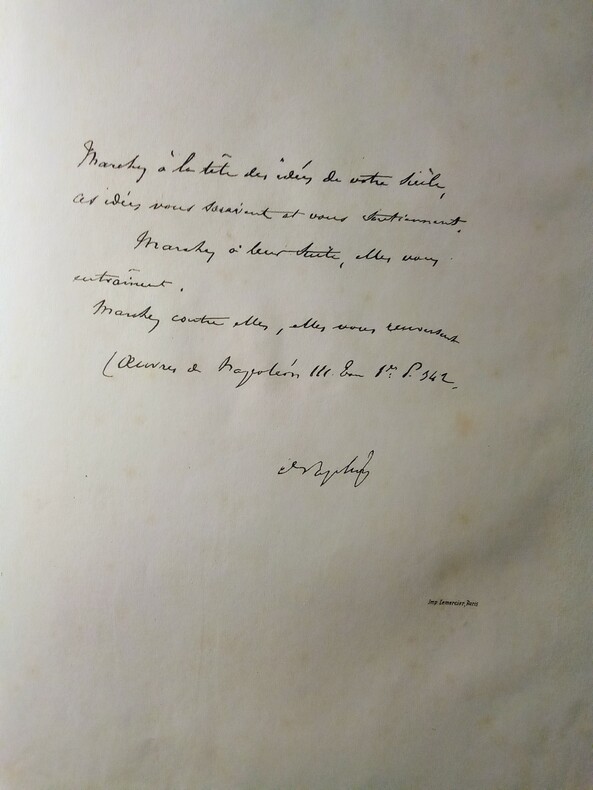 Marchez à la tête des idées de votre siècle,
ces idées vous suivent et vous soutiennent.
Marchez à leur suite, elles vous
entraînent.
Marchez contre elles, elles vous renversent
(Œuvres de Napoléon III. Tom 1er P. 342,
Imp. Lemercier, Paris